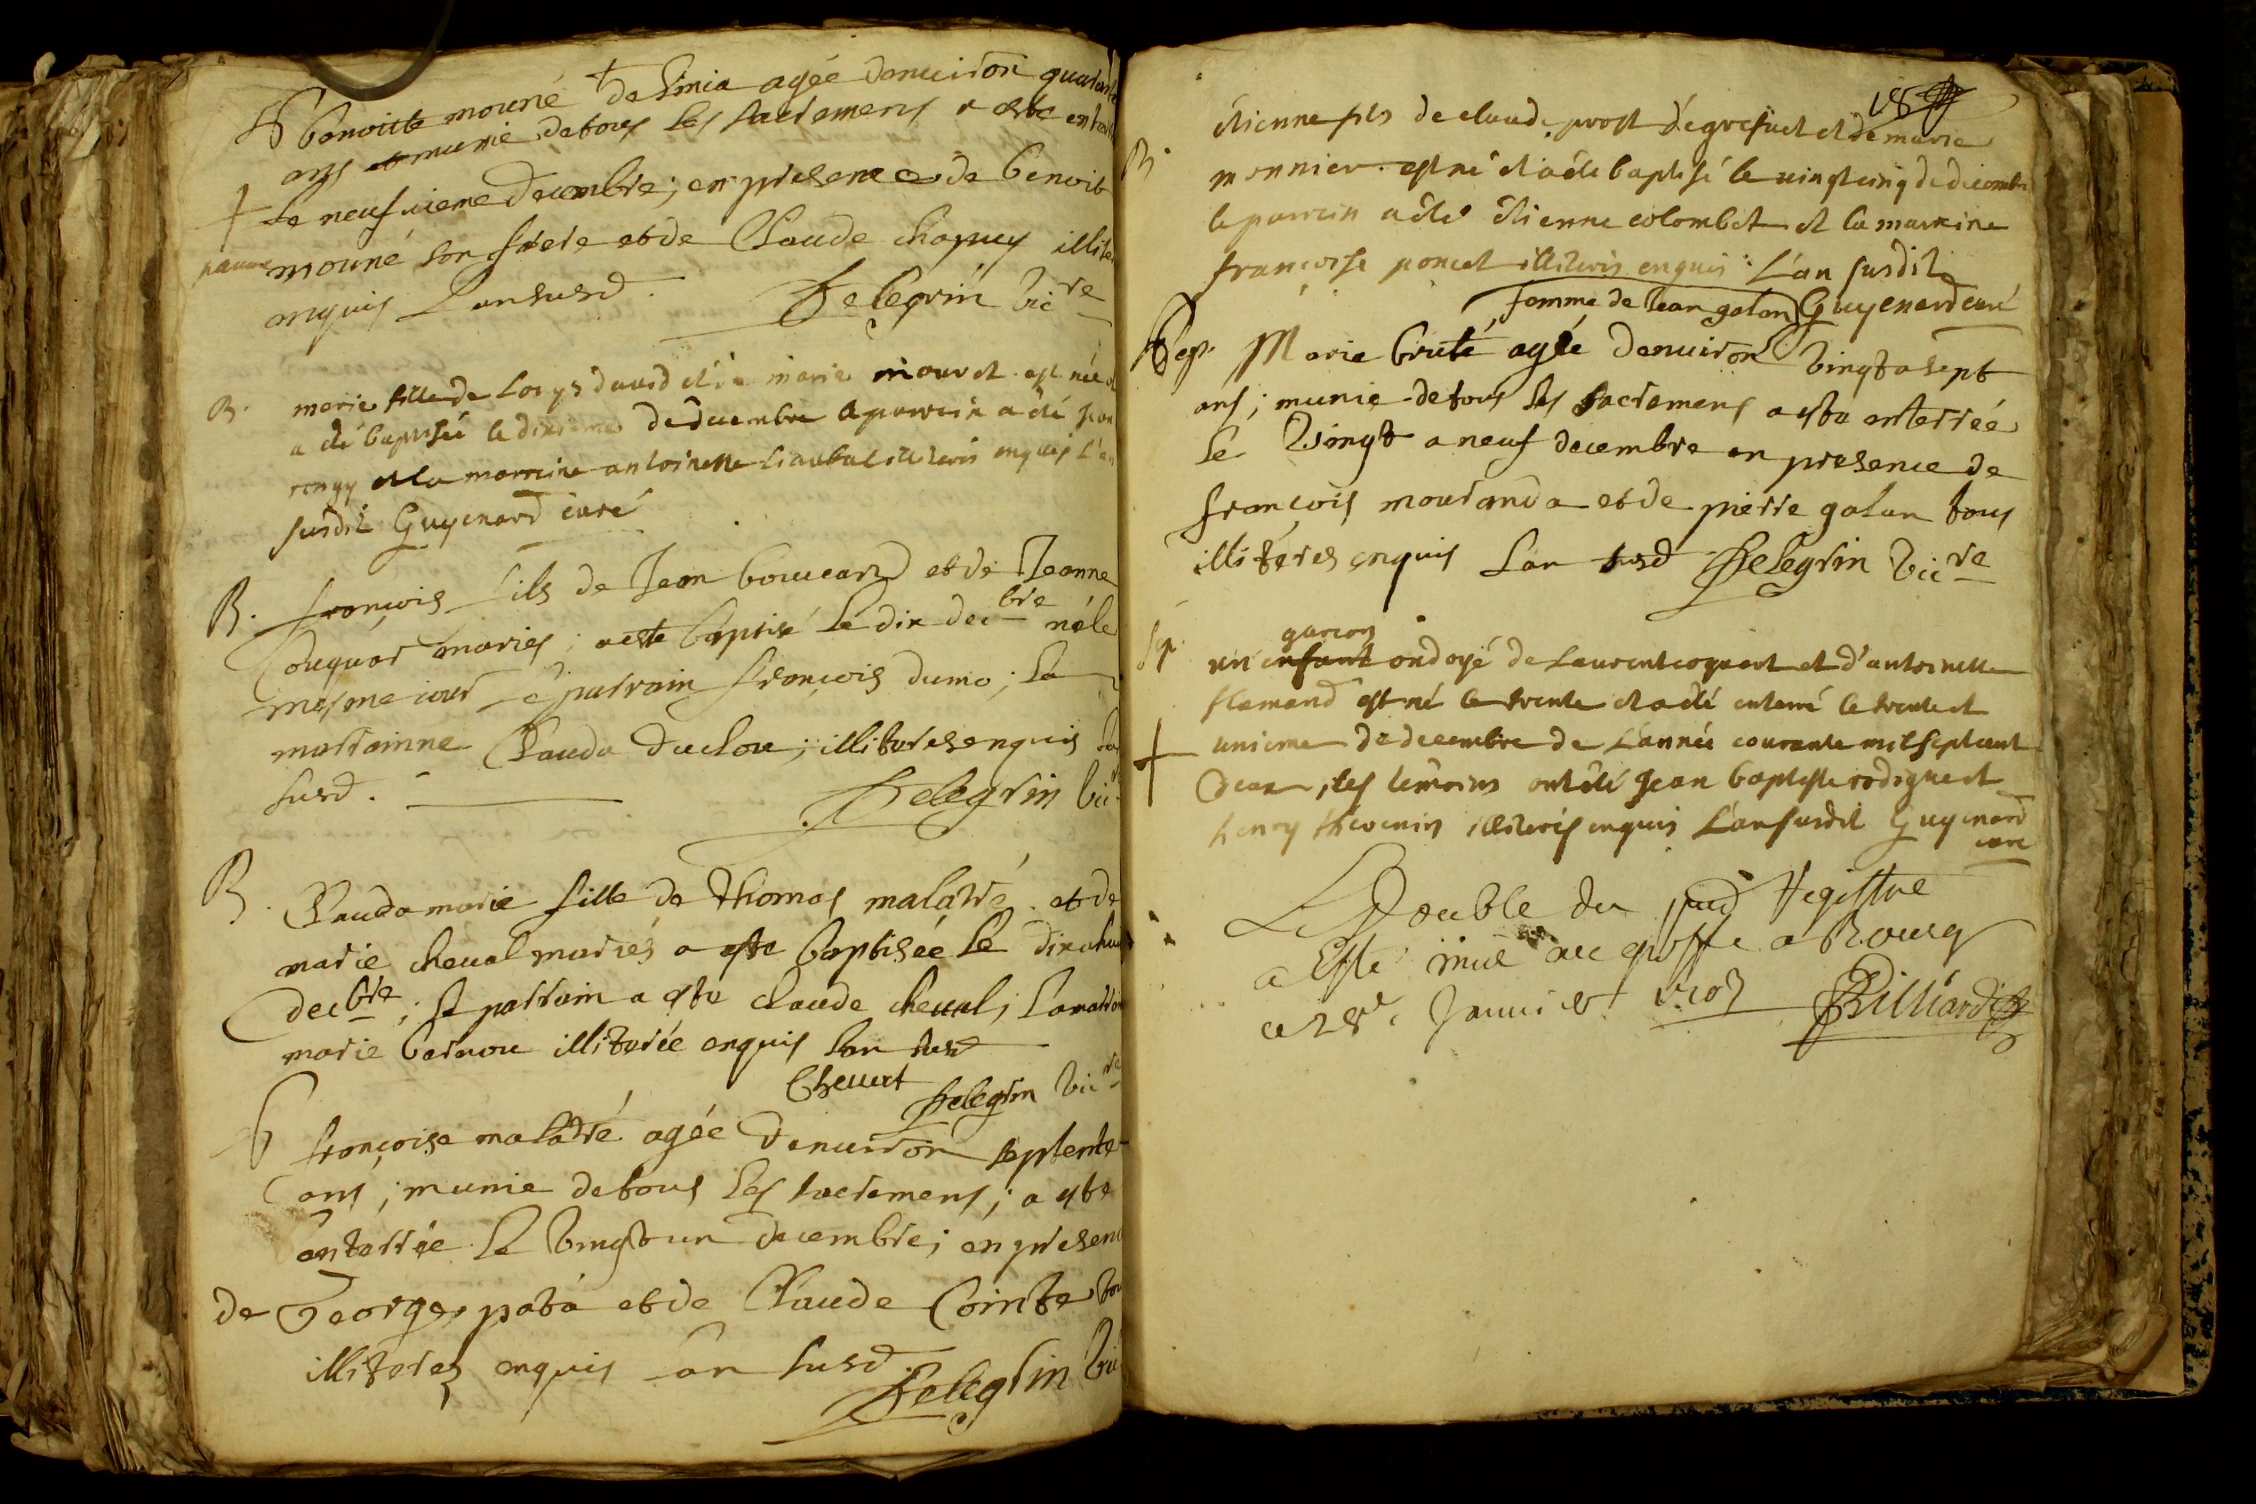 Benoitte mouné de Simia agée denuiron quarante
ans et munie detous les sacremens a este enterrée
le neufuieme decembre; en presence de benoit
pauure
mouné son frere et de Claude chapuy illiteres
enquis Lansusd. Pelegrin vicre
B. marie fille de Loüys dauid et de marie mouret est née et
a été baptisée le dixieme de decembre le parrein a été
et la marreine antoinette illiteris enquis L'an
susdit Guyenard curé
B. françois fils de Jean bouueard et de Jeanne
Couquar mariés; a este baptisé le dix decbre né le
mesme iour le parrain françois dumo; la
marrainne Clauda duclou; illiteres enquis Lan
susd. Pelegrin vicre
B. Clauda marie fille de thomas malatré et de
marie cheual mariés a este baptisée le dix a huit
decbre; le parrain a este claude cheual; la marraine
marie bernou illiterée enquis Lan susd
Cheuat Pelegrin vicre
françoise malatré agée denuiron septente
ans; munie detous les sacremens; a este
enterrée le vingt un decembre; en presence
de George pata et de Claude Cointe tous
illiteres enquis an susd. Pelegrin vic
18
B. étienne fils de claude prost de grefuet et de marie
monnier est né et a été baptisé le vingt cinq de decembre
le parrein a été étienne colombet et la marreine
françoise poncet illiteris enquis L'an susdit
femme de Jean galan Guyenard curé
Sep. Marie bruté agée denuiron vingt a sept
ans; munie de tous les sacremens a este enterrée
le vingt a neuf decembre en presence de
françois mouranda et de pierre galan tous
illiteres enquis Lan susd Pelegrin vicre
garcon
Sep. un enfant ondoyé de Laurent coquart et d'antoinette
flamand est né le trente et a été enterré le trente et
unieme de decembre de L'année courante mil sept cent
deux, les temoins ont été Jean baptiste rodignet
henry theuenin illiteris enquis L'an susdit Guyenard
curé
Le Double du sud Registre
a Esté mis au greffe a Bourg
ce 28e Januier 1703 Billiard